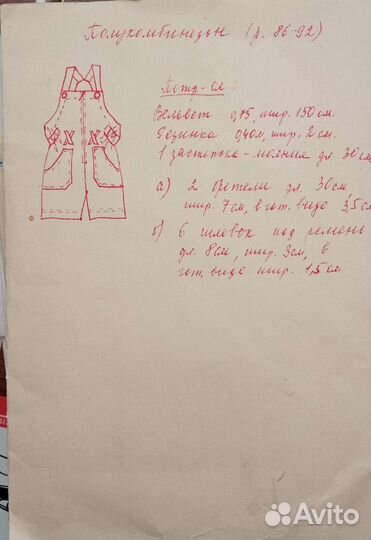 Полукомбинезон (р. 86-92)
Потр-ся:
Вельвет 0,75, шир. 150 см.
Резинка 0,40 м, шир. 2 см.
1 застежка-молния дл. 30 см
а) 2 бретели дл. 30 см,
шир. 7 см, в гот. виде 3,5 см
б) 6 шлевок под ремень
дл. 8 см, шир. 3 см, в
гот. виде шир. 1,5 см
Avito